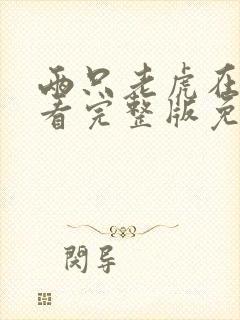 两只老虎在
看完整版免
閱导